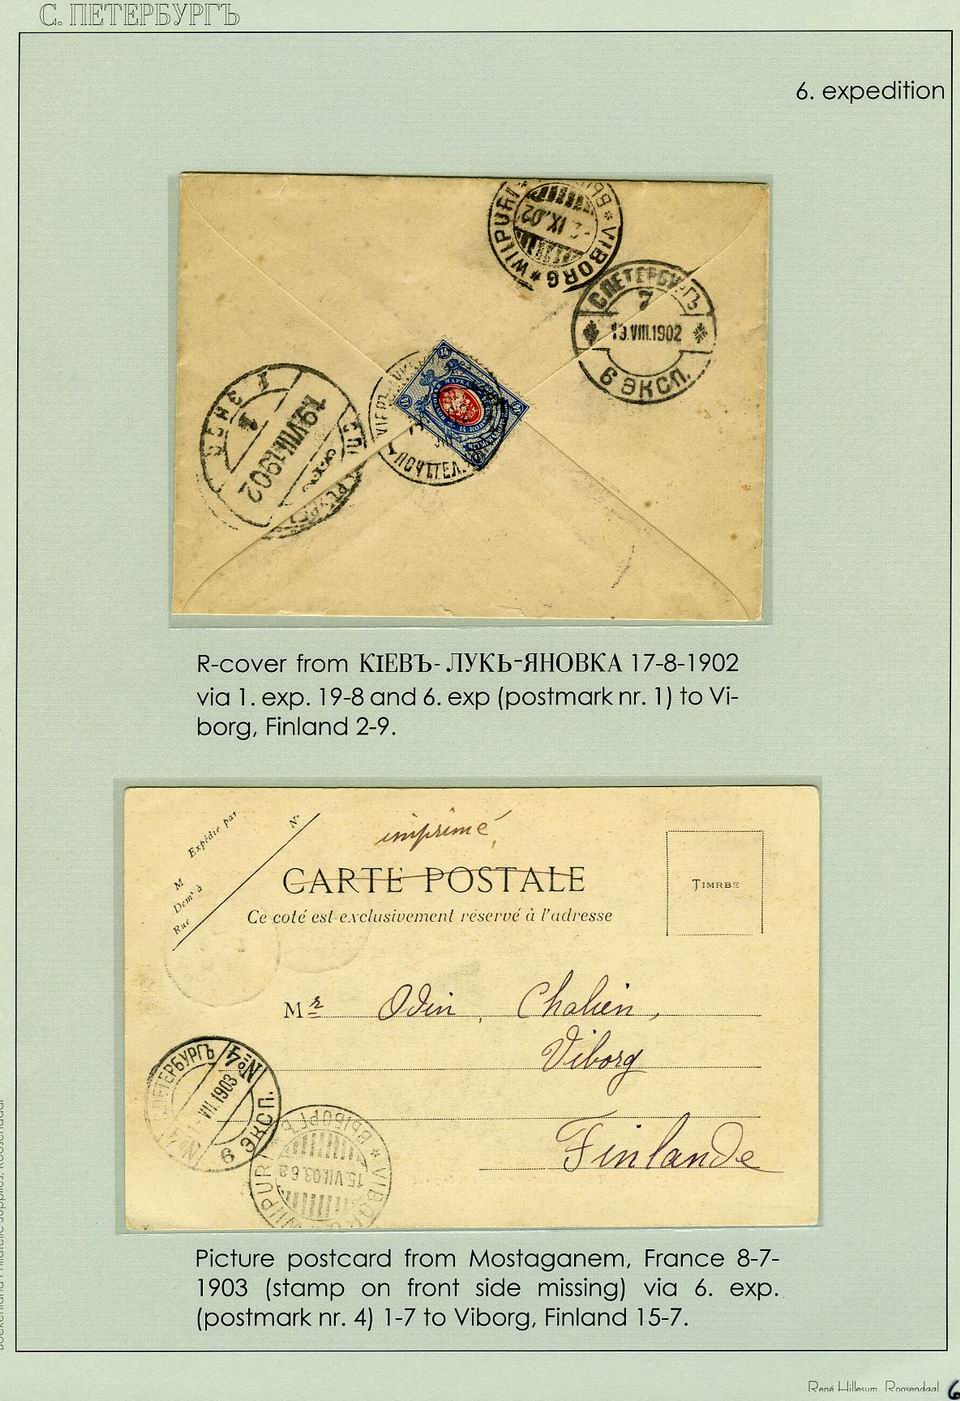 С. ПЕТЕРБУРГЪ
6. expedition
WIIPURI * VIBORG * ВЫБ
2. IX.02
С.ПЕТЕРБУРГЪ
7
19.VIII.1902
6 ЭКСП.
14
19.VIII.1902
ПОЧТ.ТЕЛ.
R-cover from КІЕВЪ-ЛУКЬ-ЯНОВКА 17-8-1902
via 1. exp. 19-8 and 6. exp (postmark nr. 1) to Vi-
borg, Finland 2-9.
imprimé
M Expédie par
Demt à
Rue
N°
CARTE POSTALE
Ce coté est exclusivement réservé à l'adresse
TIMRBE
Mr Odin, Chalien,
Viborg
Finlande
ПЕТЕРБУРГЪ
№4
VII.1903
6 ЭКСП.
ВЫБОРГЪ * VIBORG WIIPURI
15.VII.03.6a
Picture postcard from Mostaganem, France 8-7-
1903 (stamp on front side missing) via 6. exp.
(postmark nr. 4) 1-7 to Viborg, Finland 15-7.
René Hillesum, Roosendaal
6